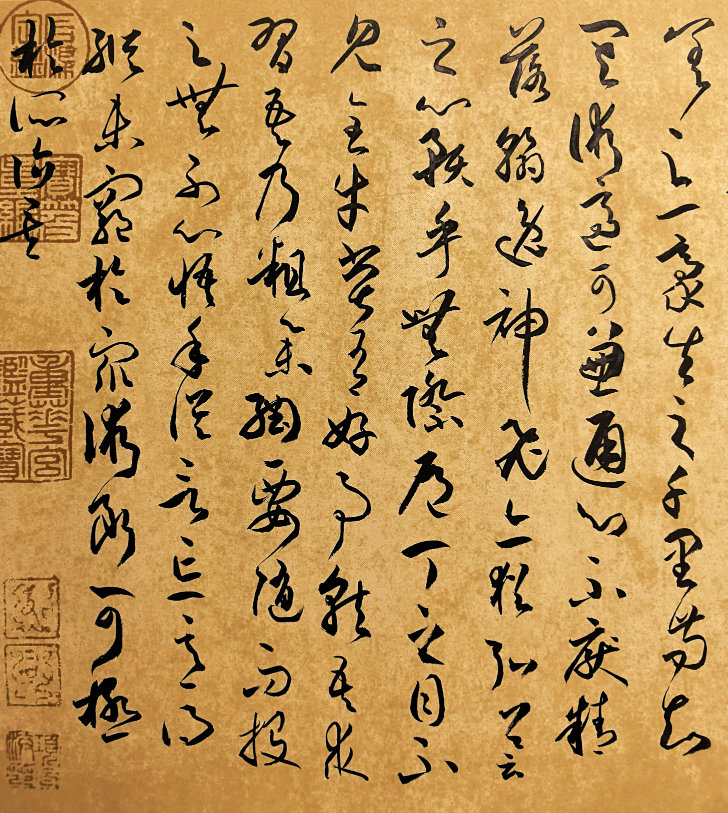 差之一豪失之千里苟知
其術適可兼通心不厭精
落翰逸神飛亦猶弘羊
之心預乎無際庖丁之目不
見全牛嘗有好事就吾求
習吾乃粗舉綱要隨而授
之無不心悟手從言忘意得
縱未窮於眾術斷可極
於所詣矣